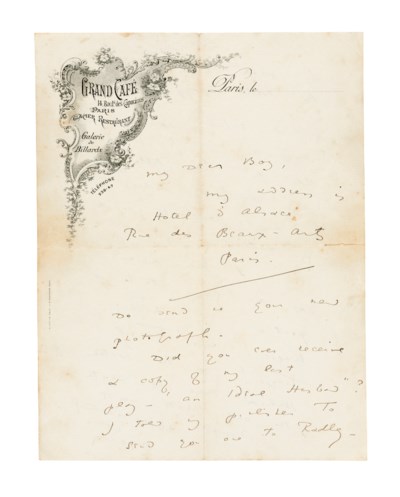 GRAND CAFÉ
PARIS
Galerie
de
Billards
TÉLÉPHONE
Paris, le
My dear Boy,
my address is
Hotel d'Alsace
Rue des Beaux-Arts
Paris.
Do send me your new
photograph.
Did you ever receive
a copy of my last
play – "an Ideal Husband"?
I told my publisher to
send you one to Radley –